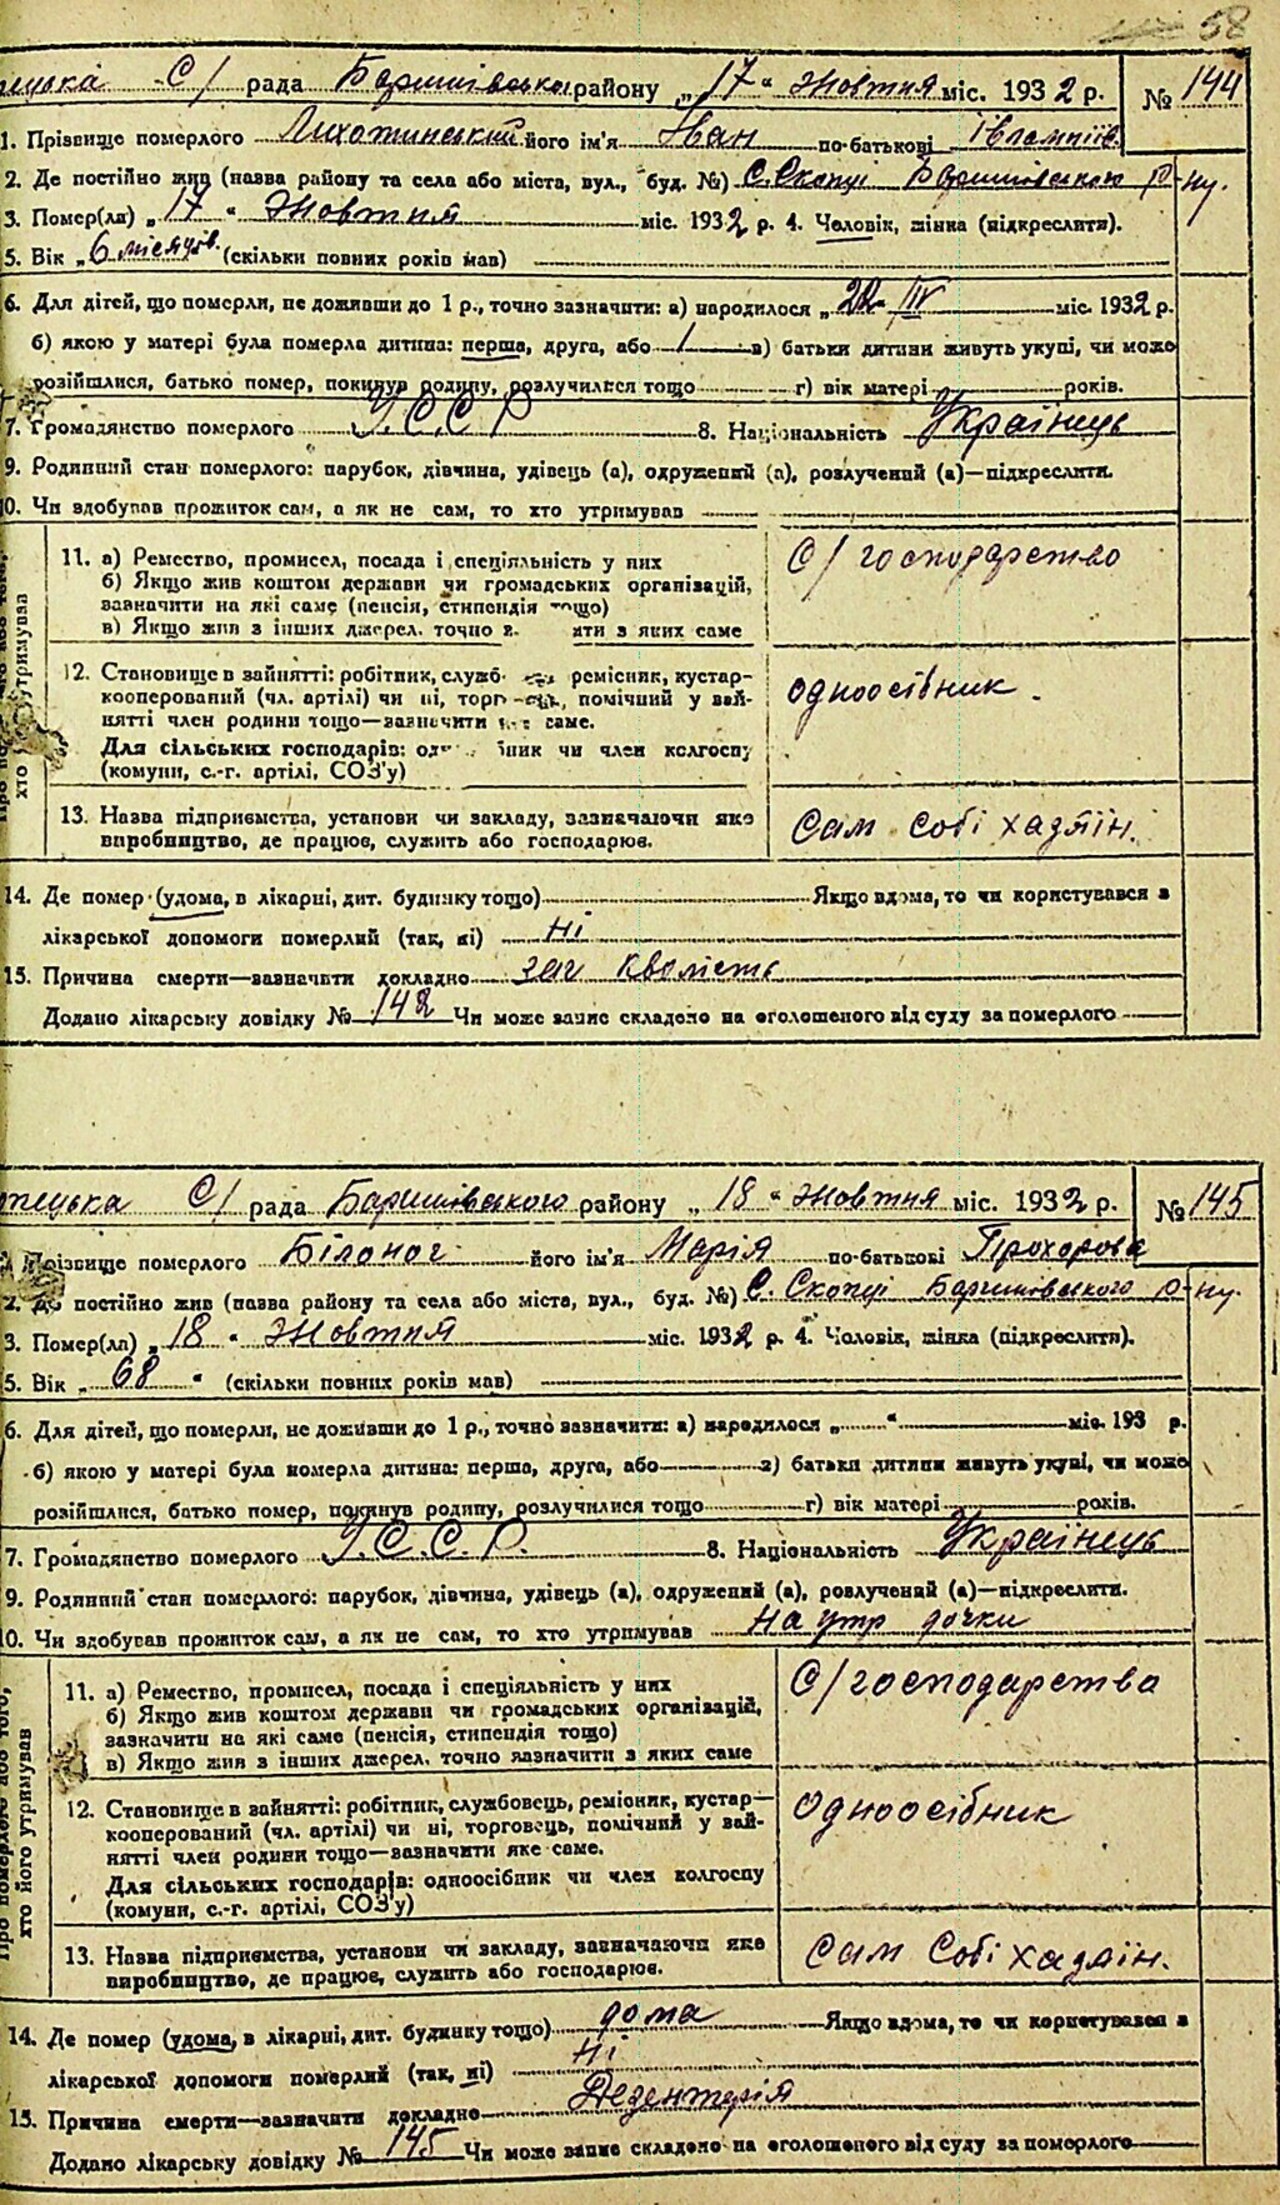 58
С/ рада Баришівського району „17“ Жовтня міс. 1932 р. № 144
1. Прізвище померлого Лихотинський його ім'я Іван по-батькові Івлампіїв.
2. Де постійно жив (назва району та села або міста, вул., буд. №) С. Скопці Баришівського р-ну.
3. Помер(ла) „17“ Жовтня міс. 1932 р. 4. Чоловік, жінка (підкреслити).
5. Вік „6 місяців. (скільки повних років мав)
6. Для дітей, що померли, не доживши до 1 р., точно зазначити: а) народилося „22“ IV міс. 1932 р.
б) якою у матері була померла дитина: перша, друга, або 1 в) батьки дитини живуть укупі, чи може
розійшлися, батько помер, покинув родину, розлучилися тощо г) вік матері років.
7. Громадянство померлого У.С.С.Р 8. Національність Українець
9. Родинний стан померлого: парубок, дівчина, удівець (а), одружений (а), розлучений (а)—підкреслити.
10. Чи здобував прожиток сам, а як не сам, то хто утримував
хто утримував
11. а) Ремество, промисел, посада і спеціяльність у них
б) Якщо жив коштом держави чи громадських організацій,
зазначити на які саме (пенсія, стипендія тощо)
в) Якщо жив з інших джерел. точно з яких саме
С/господарство
12. Становище в зайнятті: робітник, служб ремісник, кустар-
кооперований (чл. артілі) чи ні, торг помічний у зай-
нятті член родини тощо—зазначити саме.
Для сільських господарів: од бник чи член колгоспу
(комуни, с.-г. артілі, СОЗ'у)
одноосібник.
13. Назва підприємства, установи чи закладу, зазначаючи яке
виробництво, де працює, служить або господарює.
Сам собі хазяїн.
14. Де помер (удома, в лікарні, дит. будинку тощо) Якщо вдома, то чи користувався з
лікарської допомоги померлий (так, ні) Ні
15. Причина смерти—зазначити докладно заг кволість
Додано лікарську довідку № 142 Чи може запис складено на оголошеного від суду за померлого
С/ рада Баришівського району „18“ Жовтня міс. 1932 р. № 145
Прізвище померлого Білоног його ім'я Марія по-батькові Прохорова
2. Де постійно жив (назва району та села або міста, вул., буд. №) С. Скопці Баришівського р-ну.
3. Помер(ла) „18“ Жовтня міс. 1932 р. 4. Чоловік, жінка (підкреслити).
5. Вік „68“ (скільки повних років мав)
6. Для дітей, що померли, не доживши до 1 р., точно зазначити: а) народилося „ “ міс. 193 р.
б) якою у матері була померла дитина: перша, друга, або в) батьки дитини живуть укупі, чи може
розійшлися, батько помер, покинув родину, розлучилися тощо г) вік матері років.
7. Громадянство померлого У.С.С.Р. 8. Національність Українець
9. Родинний стан померлого: парубок, дівчина, удівець (а), одружений (а), розлучений (а)—підкреслити.
10. Чи здобував прожиток сам, а як не сам, то хто утримував На утр дочки
Про померлого або того,
хто його утримував
11. а) Ремество, промисел, посада і спеціяльність у них
б) Якщо жив коштом держави чи громадських організацій,
зазначити на які саме (пенсія, стипендія тощо)
в) Якщо жив з інших джерел. точно зазначити з яких саме
С/господарства
12. Становище в зайнятті: робітник, службовець, ремісник, кустар—
кооперований (чл. артілі) чи ні, торговець, помічний у зай-
нятті член родини тощо—зазначити яке саме.
Для сільських господарів: одноосібник чи член колгоспу
(комуни, с.-г. артілі, СОЗ'у)
Одноосібник
13. Назва підприємства, установи чи закладу, зазначаючи яке
виробництво, де працює, служить або господарює.
Сам собі хазяїн.
14. Де помер (удома, в лікарні, дит. будинку тощо) дома Якщо вдома, то чи користувався з
лікарської допомоги померлий (так, ні) Ні
15. Причина смерти—зазначити докладно Дезентерія
Додано лікарську довідку № 145 Чи може запис складено на оголошеного від суду за померлого